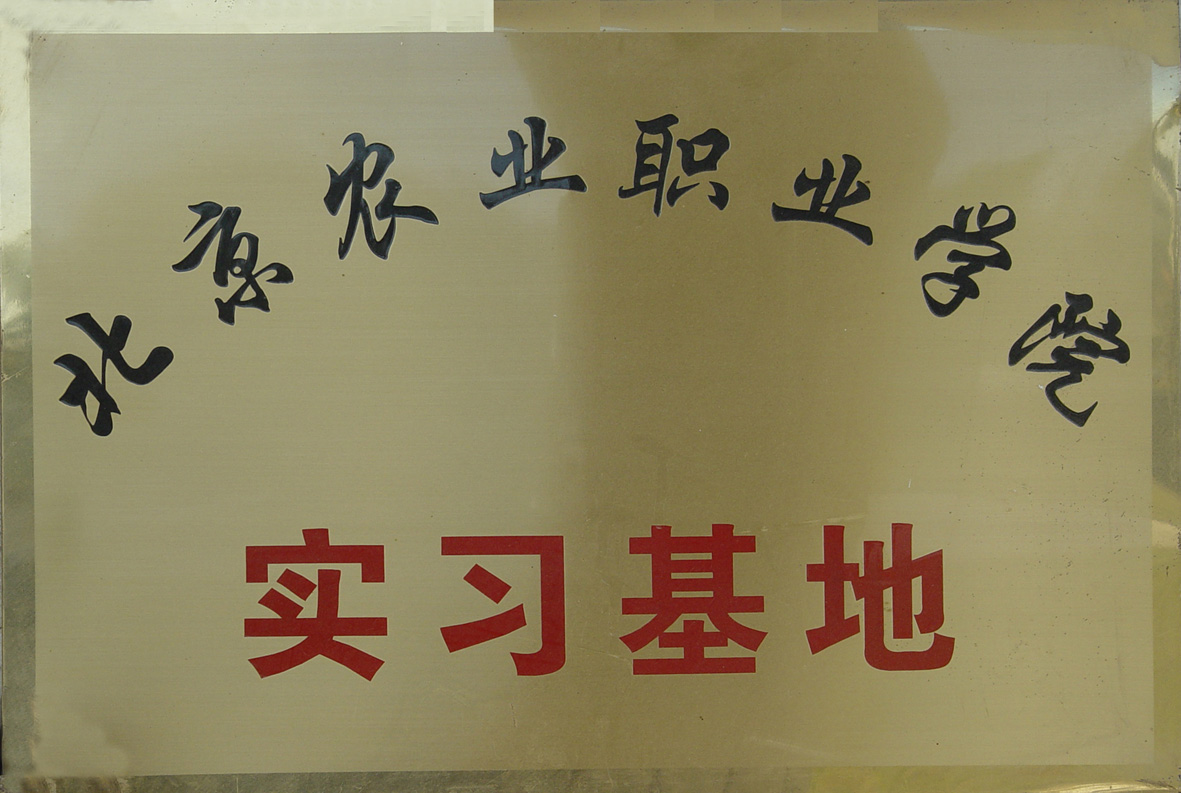 北京农业职业学院
实习基地